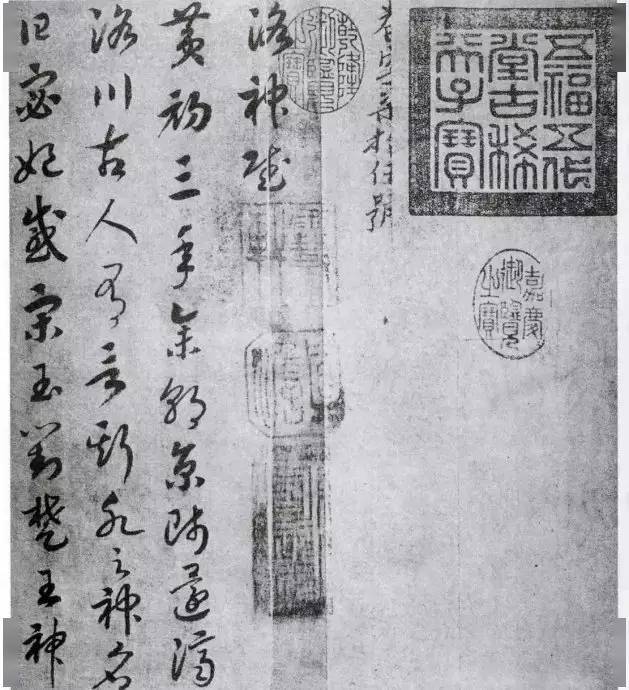 五福五代
堂古稀
天子寶
嘉慶
御覽
之寶
拾伍號
乾隆
御覽
之寶
洛神賦
黃初三年余朝京師還濟
洛川古人有言斯水之神名
曰宓妃感宋玉對楚王神